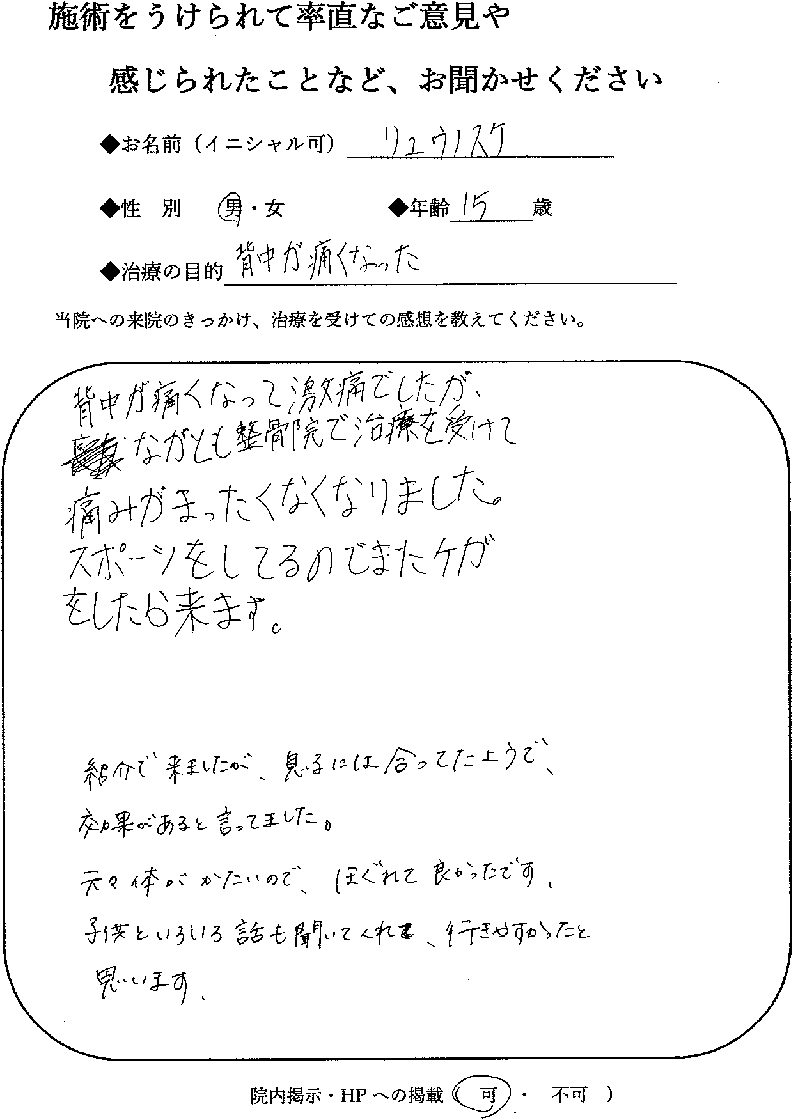 施術をうけられて率直なご意見や
感じられたことなど、お聞かせください
◆お名前（イニシャル可） リュウノスケ
◆性 別 男・女 ◆年齢 15 歳
◆治療の目的 背中が痛くなった
当院への来院のきっかけ、治療を受けての感想を教えてください。
背中が痛くなって激痛でしたが、
ながとも整骨院で治療を受けて
痛みがまったくなくなりました。
スポーツをしてるのでまたケガ
をしたら来ます。
紹介で来ましたが、息子には合ってたようで、
効果があると言ってました。
元々体がかたいので、ほぐれて良かったです。
子供といろいろ話も聞いてくれて、行きやすかったと
思います。
院内掲示・HPへの掲載（ 可 ・ 不可 ）